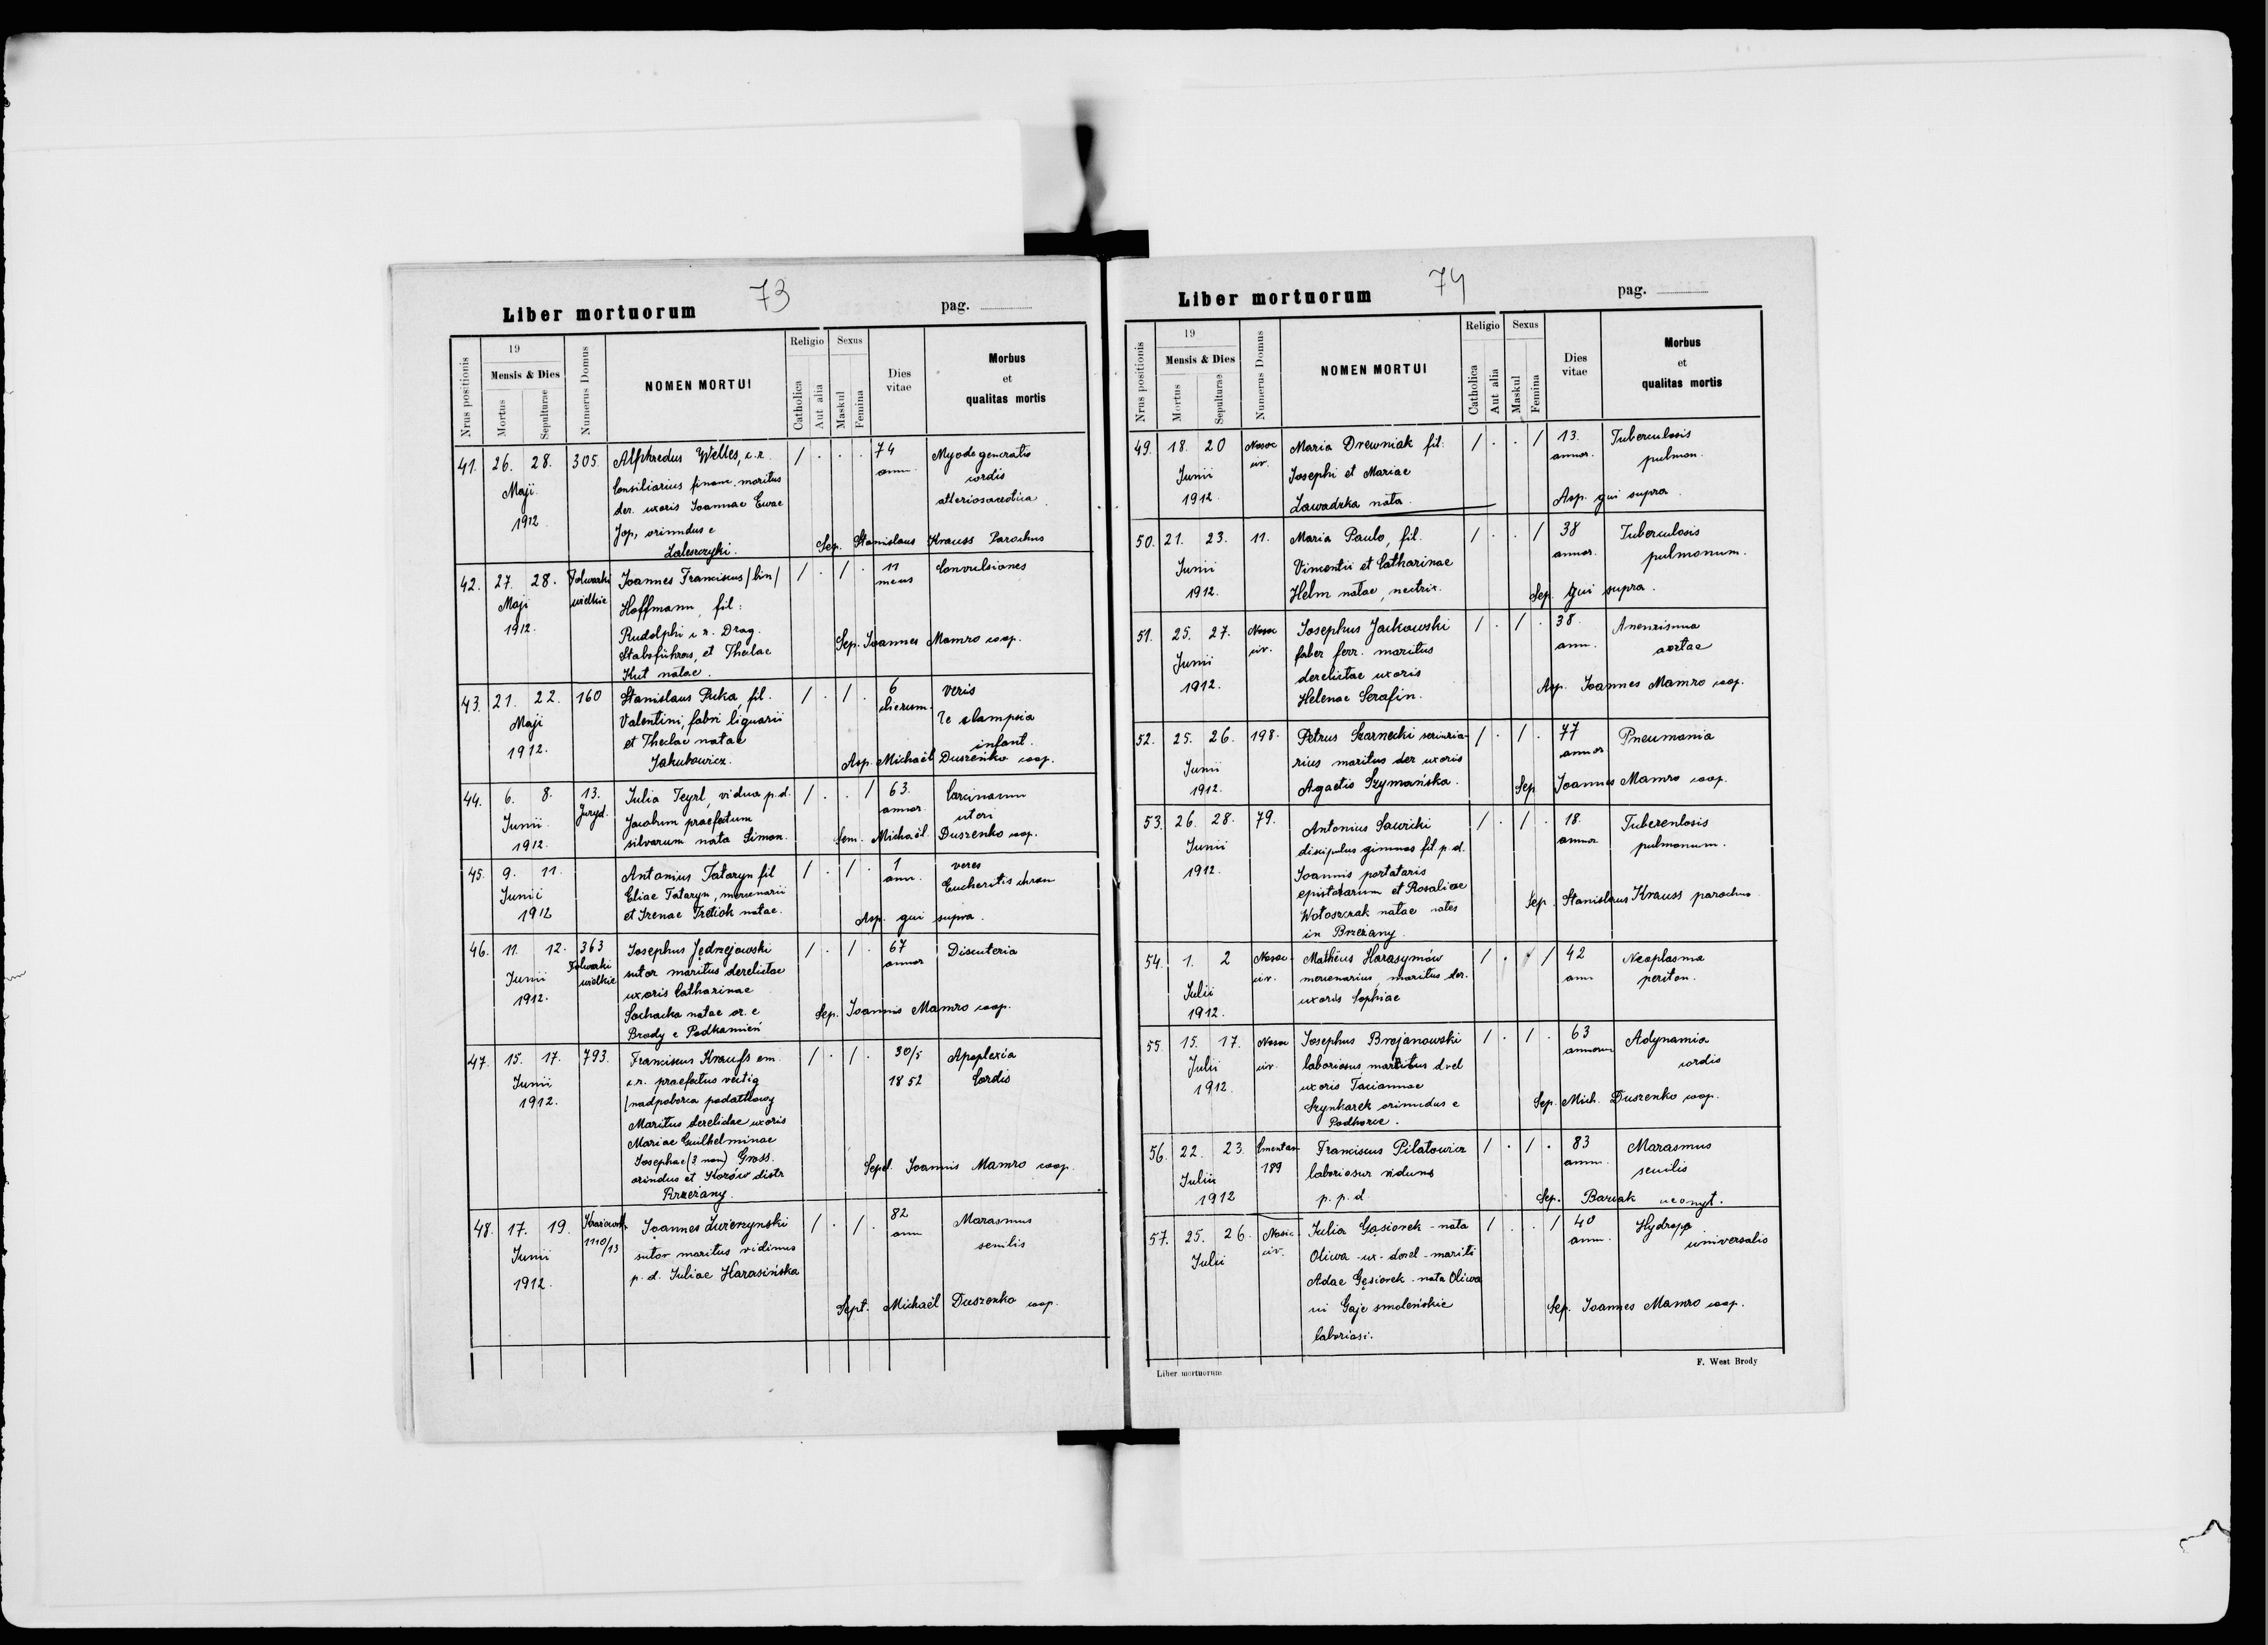 Liber mortuorum 73 pag.
Nrus positionis
19
Mensis & Dies
Mortus
Sepulturae
Numerus Domus
NOMEN MORTUI
Religio
Catholica
Aut alia
Sexus
Maskul
Femina
Dies
vitae
Morbus
et
qualitas mortis
41. 26. 28. 305. Alphredus Welles, c. r. / . . . 74 Myodegeneratio
Maji Consiliarius financ. maritus ann. cordis
1912. der. uxoris Joannae Ewae
Jop, oriundus e Sep. Stanislaus Krauss Parochus
Zaleszczyki.
42. 27. 28. Folwarki Joannes Franciscus /bin/ / . / . 11 Convulsiones
Maji wielkie Hoffmann, fil: mens
1912. Rudolphi c. r. Drag. Sep. Joannes Mamro coop.
Stabsführers, et Theclae
Kut natae.
43. 21. 22. 160 Stanislaus Puka, fil. / . / . 6 veris
Maji Valentini, fabri lignarii dierum
1912. et Theclae natae infant.
Jakubowicz. Asp. Michaël Duszenko coop.
44. 6. 8. 13. Julia Teyrl, vidua p. d. / . . / 63. Carcinoma
Junii Juryd. Jacobum praefectum annor. uteri
1912. silvarum nata Simon. Sem. Michaël Duszenko coop.
45. 9. 11. Antonius Tataryn fil / . / . 1 veres
Junii Eliae Tataryn, mercenarii ann.
1912 et Irenae Tretiok natae. Asp. qui supra.
46. 11. 12. 363 Josephus Jędrzejowski / . / . 67 Discuteria
Junii Folwarki sutor maritus derelictae annor
1912. wielkie uxoris Catharinae
Sochacka natae or. e Sep. Joannis Mamro coop.
Brody e Podkamień
47. 15. 17. 793. Franciscus Kraufs em. / . / . 30/5 Apoplexia
Junii c. r. praefectus vectig 1852 Cordis
1912. /nadpoborca podatkowy
Maritus derelictae uxoris
Mariae Guilhelminae
Josephae (3 nom) Gross.
oriundus et Kozów distr Sepel. Joannis Mamro coop.
Brzeżany.
48. 17. 19. Joannes Zwierzynski / . / . 82 Marasmus
Junii 1110/13 sutor maritus vidimus ann senilis
1912. p. d. Juliae Harasińska
Sept. Michaël Duszenko coop.
Liber mortuorum 74 pag.
Nrus positionis
19
Mensis & Dies
Mortus
Sepulturae
Numerus Domus
NOMEN MORTUI
Religio
Catholica
Aut alia
Sexus
Maskul
Femina
Dies
vitae
Morbus
et
qualitas mortis
49. 18. 20 Nosoc Maria Drewniak fil: / . . / 13. Tuberculosis
Junii civ. Josephi et Mariae annor. pulmon.
1912. Zawadzka nata. Asp. qui supra.
50. 21. 23. 11. Maria Paulo, fil. / . . / 38 Tuberculosis
Junii Vincentii et Catharinae annor. pulmonum.
1912. Helm natae, nectrix. Sep. qui supra.
51. 25. 27. Nosoc Josephus Jackowski / . / . 38. Anenrisma
Junii civ. faber ferr. maritus ann. aortae
1912. derelictae uxoris
Helenae Serafin. Asp. Joannes Mamro coop.
52. 25. 26. 198. Petrus Czarnecki scriniria- / . / . 77 Pneumonia
Junii rius maritus der uxoris annor
1912. Agaetis Szymańska. Sep Joannes Mamro coop.
53. 26. 28. 79. Antonius Sawicki / . / . 18. Tuberculosis
Junii discipulus gimnas fil. p. d. annor pulmonum.
1912. Joannis portataris
epistolarum et Rosaliae
Wołoszczak natae nates Sep. Stanislaus Krauss parochus
in Brzeżany.
54. 1. 2 Nosoc Mathëus Harasymów / . / / 42 Neoplasma
Julii civ. mercenarius, maritus der. ann periton.
1912. uxoris Sophiae
55. 15. 17. Nosoc Josephus Brojanowski / . / . 63 Adynamia
Julii civ. laboriosus maritus drel annorum cordis
1912. uxoris Taciannae
Szynkarek oriundus e Sep. Mich. Duszenko coop.
Podhorce.
56. 22. 23. Cmentar Franciscus Piłatowicz / . / . 83 Marasmus
Julii 189 laboriosur viduus annor. senilis
1912 p. p. d Sep. Barcak neomyt.
57. 25. 26. Nosic Julia Gąsiorek - nata / . . / 40 Hydropo
Julii civ. Oliwa - ux - derel - mariti ann. universalis
Adae Gęsiorek - nata Oliwa
in Gaje smoleńskie Sep. Joannes Mamro coop.
laboriosi.
Liber mortuorum
F. West Brody